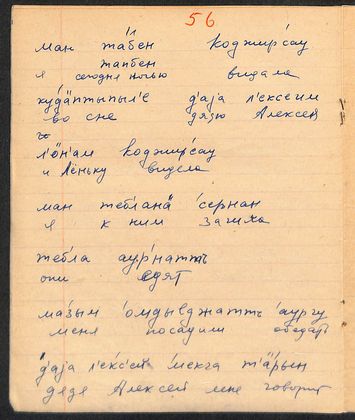 56
ман та́бен коджирса́у
тапбен
я сегодня ночью видела
ку́дӓптыпыл'е д'аjа л'ексеим
во сне дядю Алексея
л'ӧн'ам коджирса́у
и Лёньку видела
ман тебланӓ се́рнан
я к ним зашла
те́бла аурна́ттъ
они едят
ма́зым о́мдылджаттъ а́ургу
меня посадили обедать
д'аjа л'ексе́й ме́кга т'ӓрын
дядя Алексей мне говорит